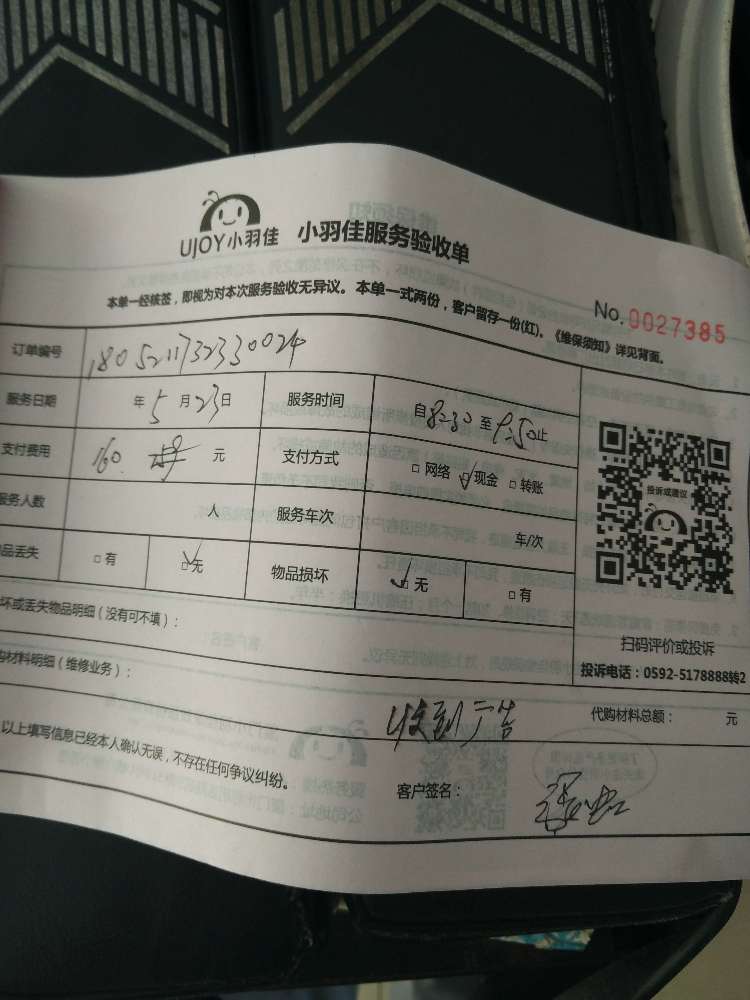 UJOY小羽佳 小羽佳服务验收单
本单一经核签，即视为对本次服务验收无异议。本单一式两份，客户留存一份(红)。《维保须知》详见背面。
No.0027385
订单编号 180521173233 0024
服务日期 年5月23日 服务时间 自8:30至9:50止
支付费用 160. 元 支付方式 □网络 □现金 □转账
服务人数 人 服务车次 车/次
品丢失 □有 □无 物品损坏 □无 □有
坏或丢失物品明细（没有可不填）：
购材料明细（维修业务）：
投诉或建议
扫码评价或投诉
投诉电话：0592-5178888转2
收到广告 代购材料总额： 元
以上填写信息已经本人确认无误，不存在任何争议纠纷。
客户签名：